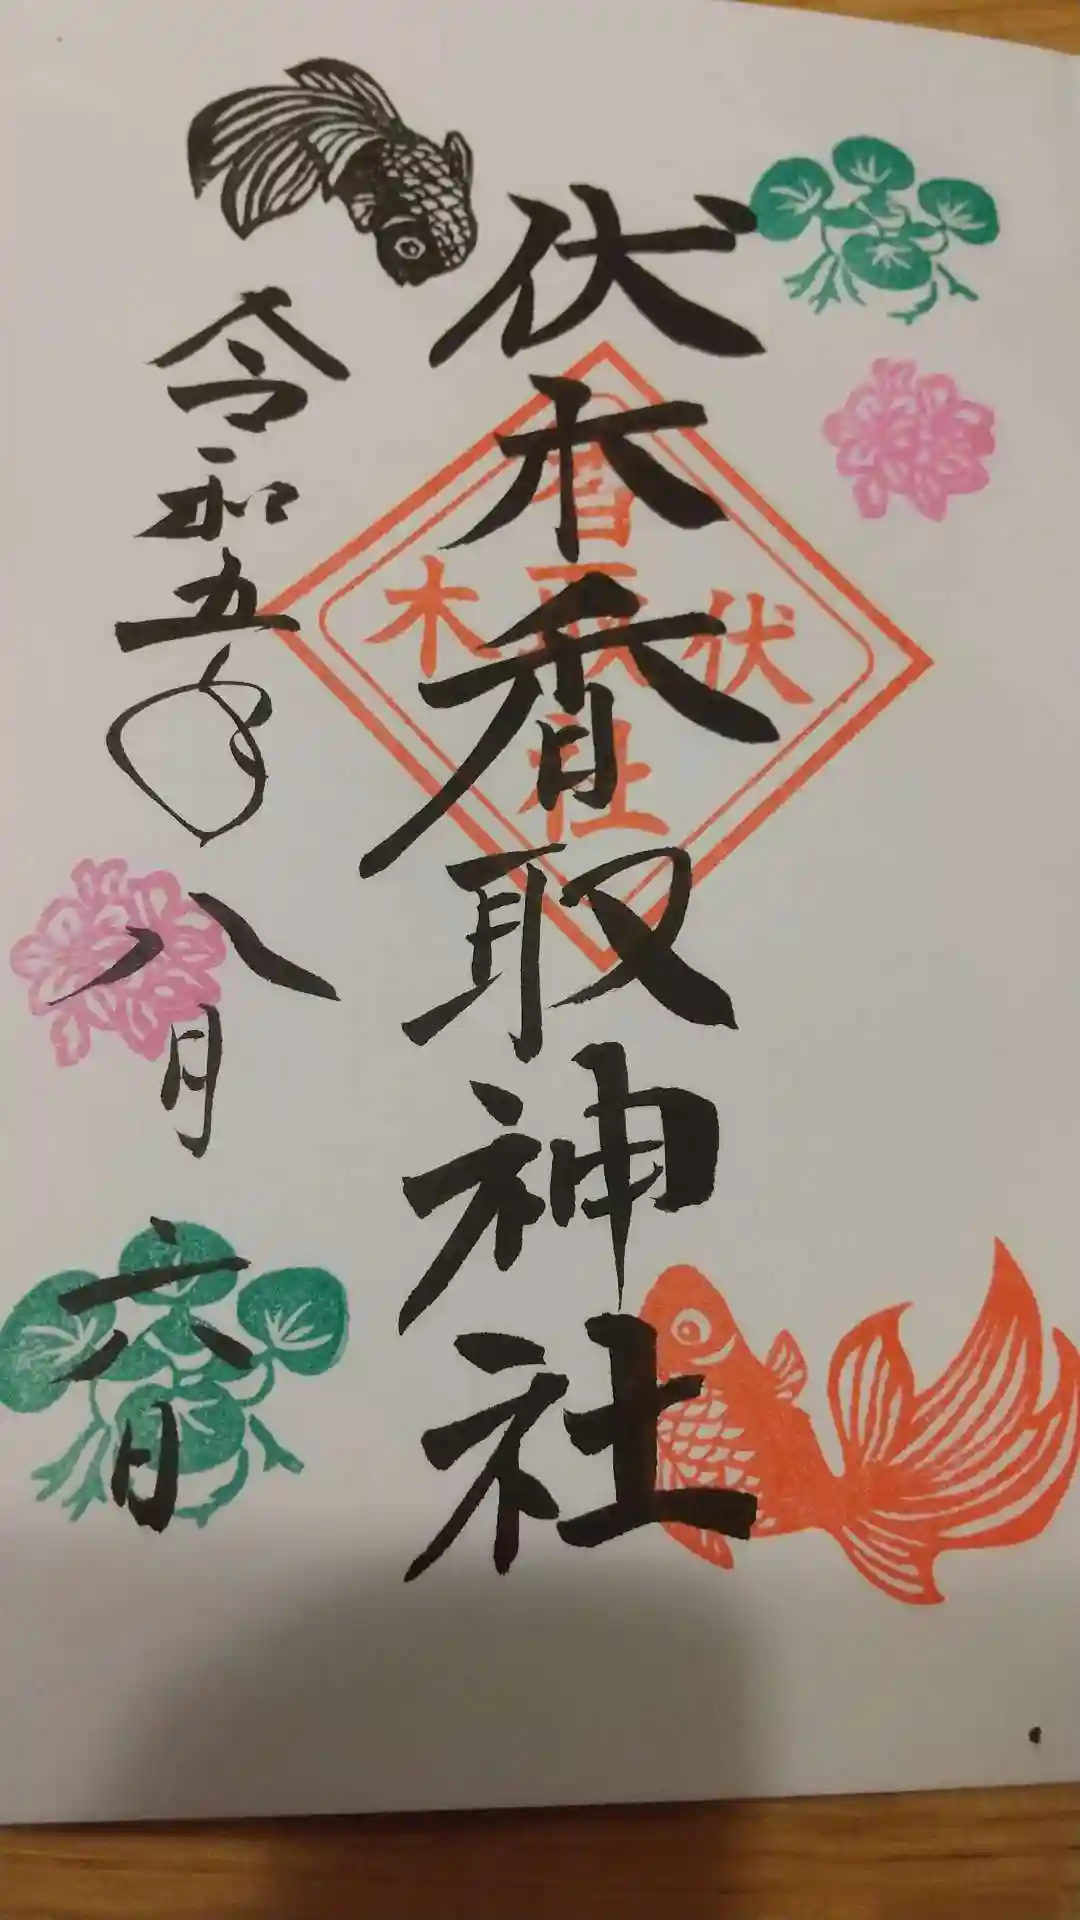 伏木香取神社
伏木香取社
令和五年八月六日